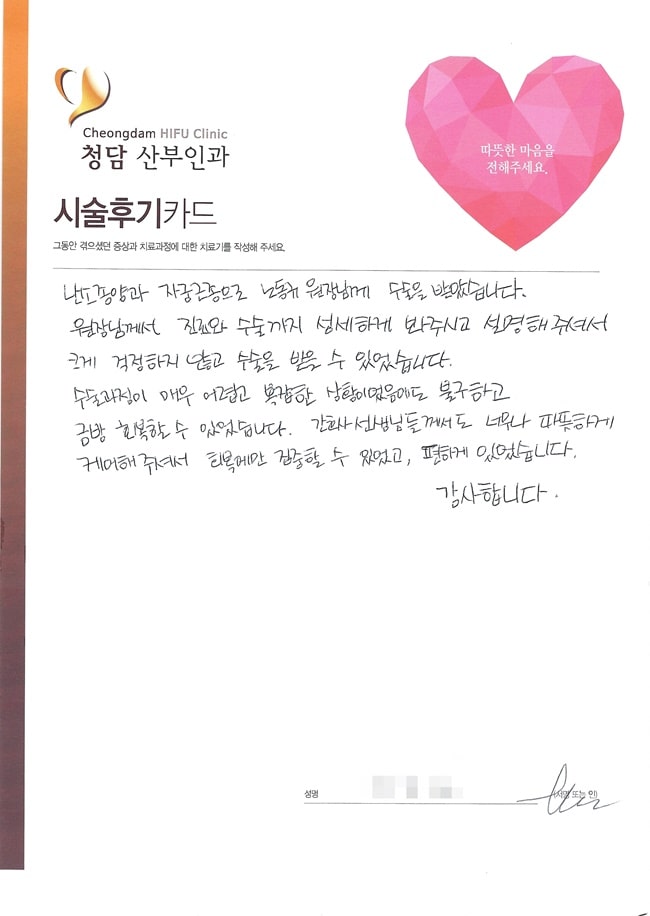 Cheongdam HIFU Clinic
청담 산부인과
따뜻한 마음을
전해주세요.
시술후기카드
그동안 겪으셨던 증상과 치료과정에 대한 치료기를 작성해 주세요.
난포종양과 자궁근종으로 노동귀 원장님께 수술을 받았습니다.
원장님께서 진료와 수술까지 섬세하게 봐주시고 설명해주셔서
크게 걱정하지 않고 수술을 받을 수 있었습니다.
수술과정이 매우 어렵고 복잡한 상황이었음에도 불구하고
금방 회복할 수 있었습니다. 간호사 선생님들께서도 너무나 따뜻하게
케어해 주셔서 회복에만 집중할 수 있었고, 편하게 있었습니다.
감사합니다.
성명 (서명 또는 인)